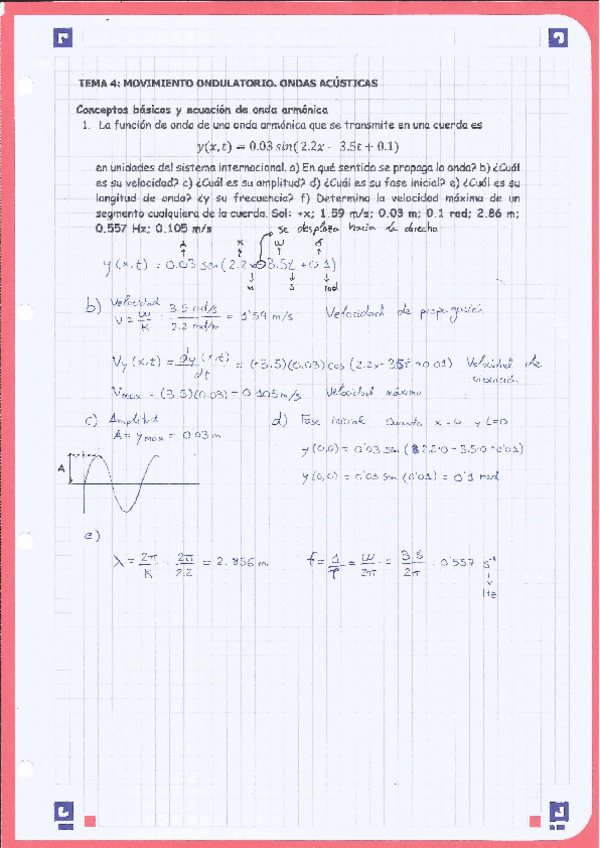 TEMA 4: MOVIMIENTO ONDULATORIO. ONDAS ACÚSTICAS
Conceptos básicos y ecuación de onda armónica
1. La función de onda de una onda armónica que se transmite en una cuerda es
y(x,t) = 0.03 sin( 2.2x - 3.5t + 0.1)
en unidades del sistema internacional. a) En qué sentido se propaga la onda? b) ¿Cuál
es su velocidad? c) ¿Cuál es su amplitud? d) ¿Cuál es su fase inicial? e) ¿Cuál es su
longitud de onda? ¿y su frecuencia? f) Determina la velocidad máxima de un
segmento cualquiera de la cuerda. Sol: +x; 1.59 m/s; 0.03 m; 0.1 rad; 2.86 m;
0.557 Hz; 0.105 m/s
se desplaza hacia la derecha
A K ω
y(x,t) = 0.03 sen (2.2x - 3.5t + 0.1)
rad
b) Velocidad
V = ω/K = 3.5 rad/s / 2.2 rad/m = 1'59 m/s Velocidad de propagación
Vy (x,t) = dy (x,t)/dt = (-3.5)(0.03) cos (2.2x - 3.5t + 0.1) Velocidad de
vibración
Vmax = (3.5)(0.03) = 0.105 m/s Velocidad máxima
c) Amplitud
A = ymax = 0.03 m
d) Fase inicial cuando x=0 y t=0
y(0,0) = 0'03 sen (2.2·0 - 3.5·0 + 0'01)
y(0,0) = 0'03 sen (0'01) = 0'1 rad
A
e)
λ = 2π/K = 2π/2.2 = 2.856 m f = 1/T = ω/2π = 3.5/2π = 0'557 s⁻¹
Hz